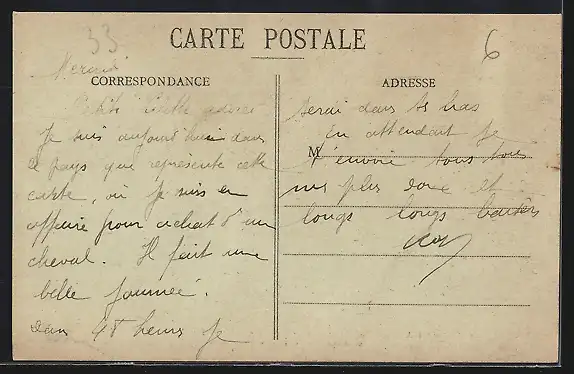 33
CARTE POSTALE
6
CORRESPONDANCE
Petite adorée
Je suis aujourd'hui dans
le pays que représente cette
carte, où je suis en
affaire pour achat d'un
cheval. Il fait une
belle journée.
dans 48 heures je
ADRESSE
serai dans tes bras
En attendant je
M
t'envoie tous tous
mes plus doux et
longs longs baisers